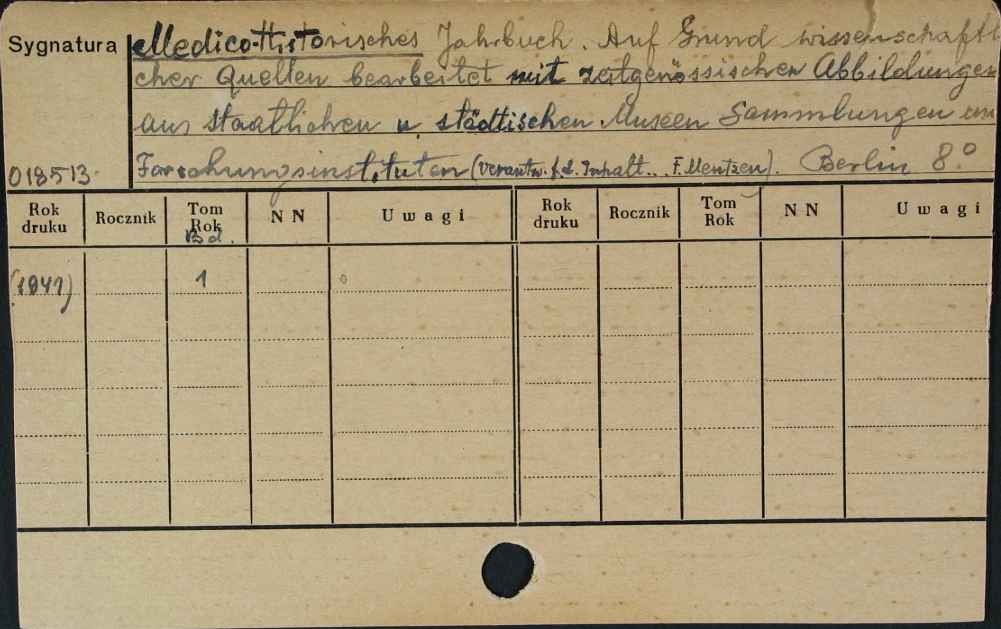 Sygnatura
Medico-Historisches Jahrbuch. Auf Grund wissenschaftl
cher Quellen bearbeitet mit zeitgenössischen Abbildungen
aus staatlichen u. städtischen Museen Sammlungen un
Forschungsinstituten (verantw. f. d. Inhalt... F. Mentzen). Berlin 8°
018513
Rok druku Rocznik Tom Rok NN Uwagi Rok druku Rocznik Tom Rok NN Uwagi
Bd.
(1941) 1